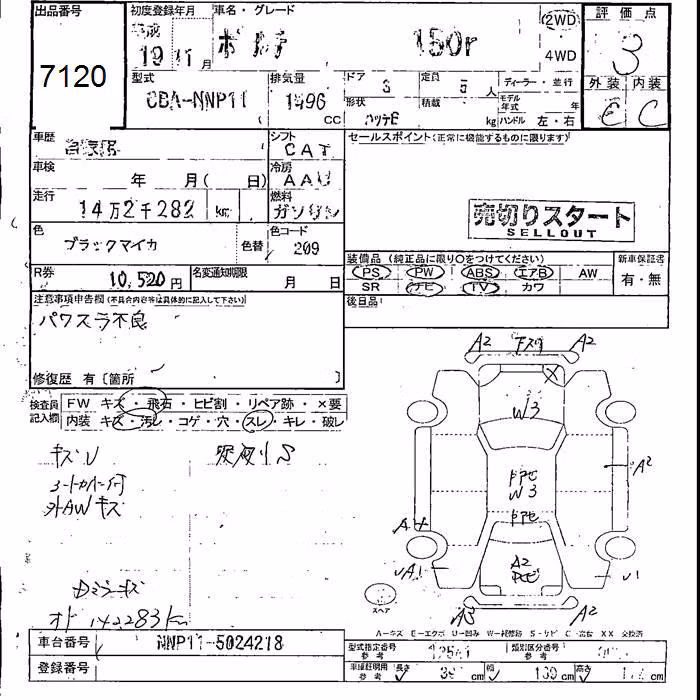 出品番号
7120
初度登録年月
平成
19 11月
車名・グレード
ポルテ 150r
2WD
4WD
評価点
3
外装 内装
E C
型式
CBA-NNP11
排気量
1496
CC
ドア
定員
5人
形状
積載
kg
ディーラー・並行
モデル年式 年
ハンドル 左・右
車歴
自家用
シフト
CAT
車検
年 月( 日)
冷房
AAC
走行
14万2千282 km
燃料
ガソリン
色
ブラックマイカ
色替
色コード
209
R券
10,520円
名変通知期限
月 日
セールスポイント(正常に機能するものに限ります)
売切りスタート
SELLOUT
装備品(純正品に限り○をつけてください)
PS PW ABS エアB AW
SR ナビ TV カワ
新車保証書
有・無
後日品
注意事項申告欄(不具合内容等は具体的に記入して下さい)
パワスラ不良
修復歴 有〔箇所 〕
検査員記入欄
FW キズ・飛石・ヒビ割・リペア跡・×要
内装 キズ・汚レ・コゲ・穴・スレ・キレ・破レ
キズU
外AWキズ
Dミラーキズ
オド 142283km
A2 A2
W3
A2
W3
A2
A1
A3 A2
スペア
車台番号
NNP11-5024218
登録番号
型式指定番号
参考
類別区分番号
参考
車庫証明用
参考
長さ
cm
幅
169 cm
高さ
cm